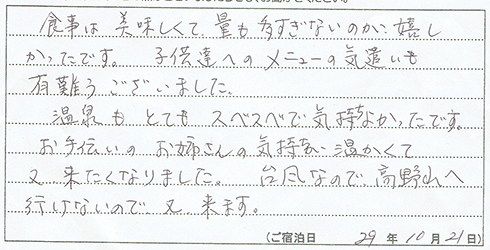 食事は 美味しくて 量も 多すぎないのが 嬉し
かったです。 子供達への メニューの 気遣いも
有難う ございました。
温泉も とても スベスベで 気持なかったです。
お手伝いの お姉さんの 気持が 温かくて
又、来たくなりました。 台風なので 高野山へ
行けないので 又、来ます。
(ご宿泊日 29 年 10 月 21 日)